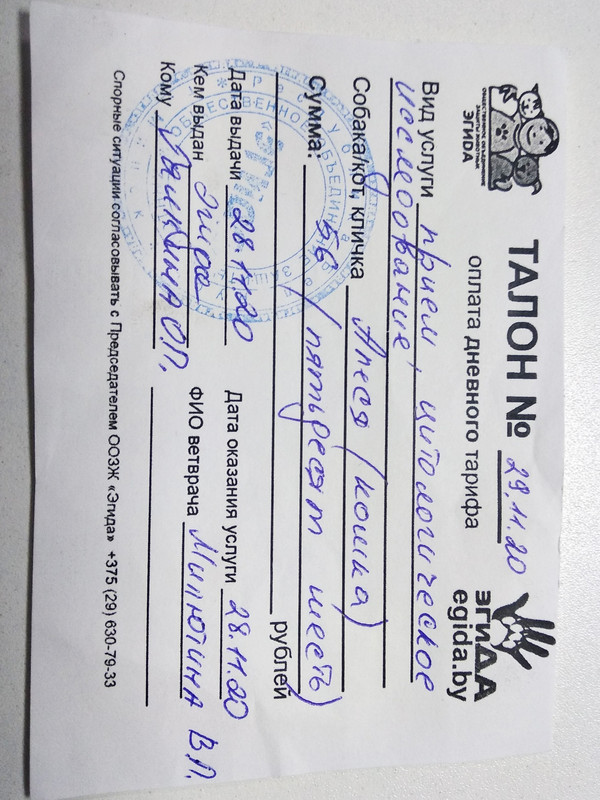 ОБЩЕСТВЕННОЕ ОБЪЕДИНЕНИЕ
ЗАЩИТЫ ЖИВОТНЫХ
ЭГИДА
ТАЛОН № 29.11.20
оплата дневного тарифа
ЭГИДА
egida.by
Вид услуги приём, цитологическое
исследование
Собака/кот, кличка Алеся (кошка)
Сумма: 56 (пятьдесят шесть) рублей
Дата выдачи 28.11.20 Дата оказания услуги 28.11.20
Кем выдан Эгида ФИО ветврача Милютина В.П.
Кому О.П.
Спорные ситуации согласовывать с Председателем ООЗЖ «Эгида» +375 (29) 630-79-33